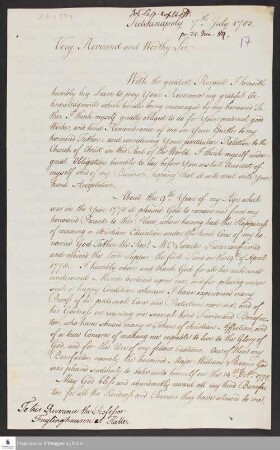 Tritchinapoly 7th July 1783.
17
Very Reverend and Worthy Sir
With the greatest Respect I herewith
humbly beg leave to pay Your Reverence my grateful
which besides being encouraged by my honoured
Father, I think myself greatly obliged to do for Your paternal good
Wishes and kind Remembrance of me in Your Epistle to my
honoured Father: and considering Your Relation to the
Church of Christ in this Part of the World, I think myself under
great Obligation humbly to lay before You a short Account of
myself and of my hoping that it will meet with Your
kind Acceptation.
About the 9th Year of my Age which
was in the Year 1770 it pleased God to remove me from my
honoured Parents to this Place, where having had the Happiness
of receiving a Christian Education under the kind Care of my ho-
noured God Father the Rev. Mr Swartz I was confirmed
and received the Lord's Supper the first Time on the 19th of April
1778. I humbly adore and thank God for all his undeserved
such a happy Condition wherein I have experienced many
Proofs of his paternal Care and Protection over me, and of
his Goodness in raising me several kind Friends and Benefac-
tors, who have shewed many a Token of christian Affection, and
of an eager Concern of making me capable to live to the Glory of
God, and for the Use of my fellow Creatures. One of them my
Benefactor namely the honoured Major God
was pleased suddenly to take unto himself on the 14th Octbr 1778.
May God bless and abundantly reward all my kind Benefac-
tors for all the Kindness and Favours they have shewed to me.
To his Reverence the Professor
Freylinghausen at Halle.